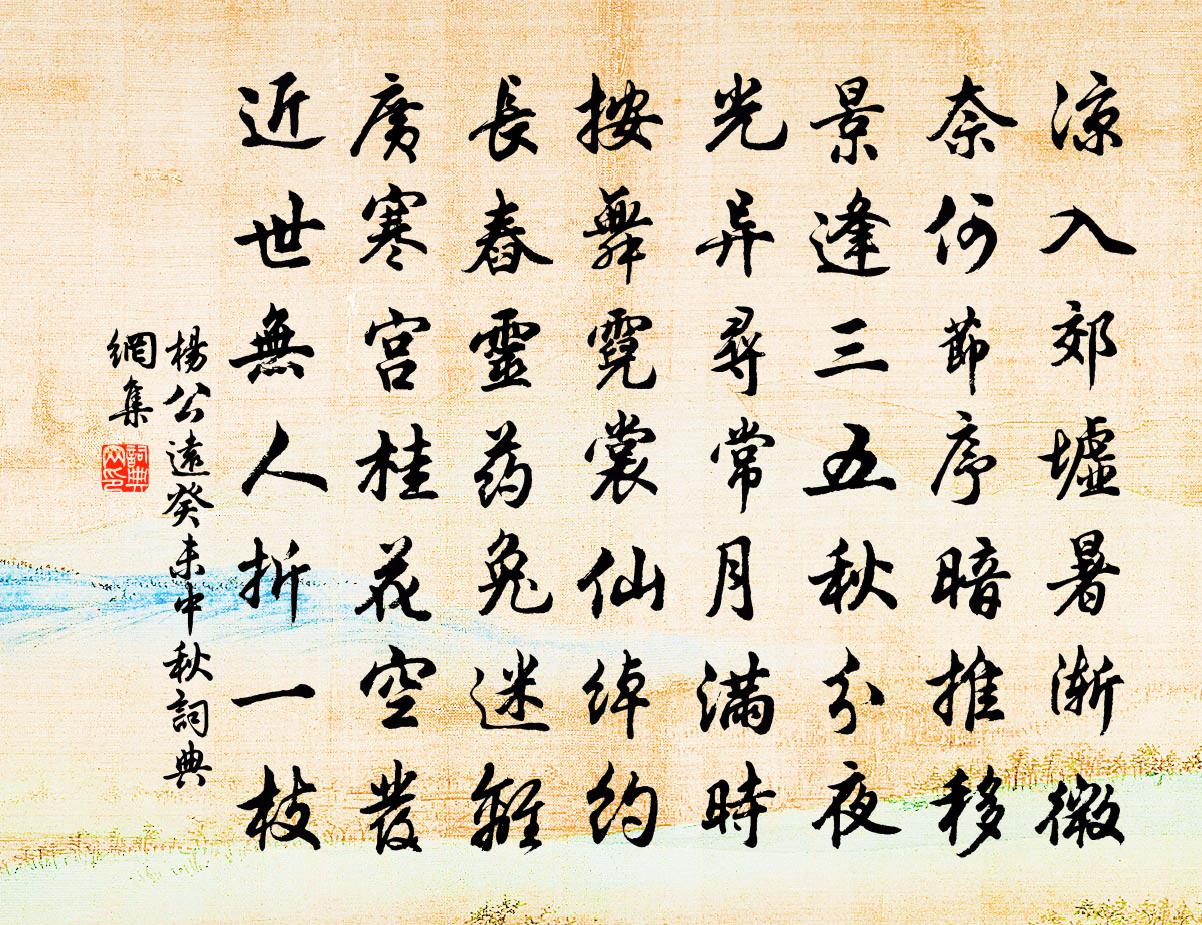 涼入郊墟暑渐微
奈何節序暗推移
景逢三五秋分夜
光异尋常月满時
按舞霓裳仙绰约
長春靈药兔迷離
廣寒宫桂花空發
近世無人折一枝
楊公遠癸未中秋詞典
網集
詞典